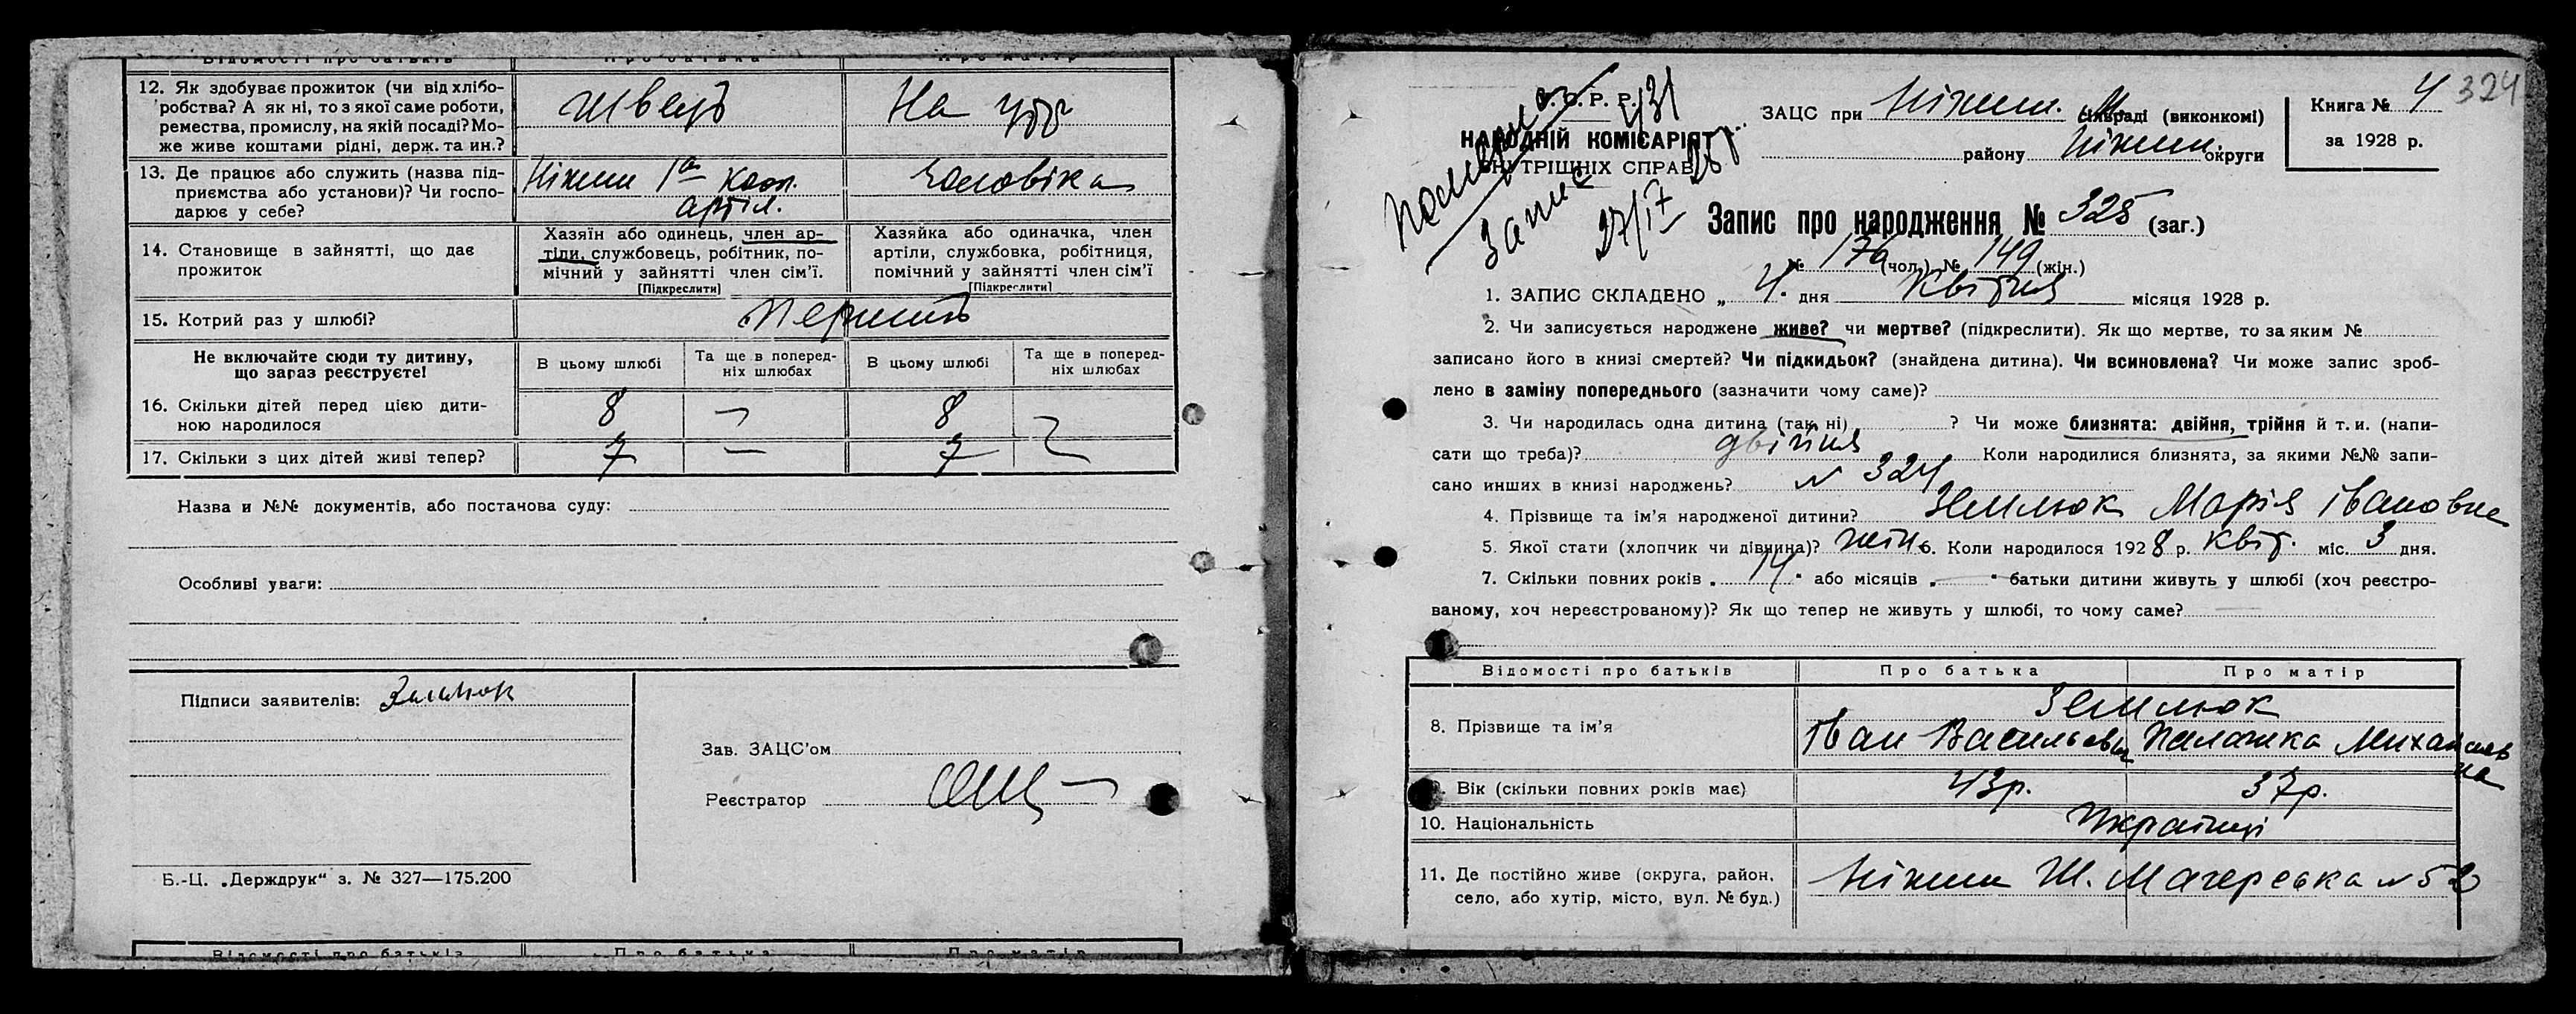 Відомості про батьків Про батька Про матір
12. Як здобуває прожиток (чи від хлібо-
робства? А як ні, то з якої саме роботи,
ремества, промислу, на якій посаді? Мо-
же живе коштами рідні, держ. та ин.?
Швець На утр
13. Де працює або служить (назва під-
приємства або установи)? Чи госпо-
дарює у себе?
Ніжин 1а кооп. артіл. Чоловіка
14. Становище в зайнятті, що дає
прожиток
Хазяїн або одинець, член ар-
тіли, службовець, робітник, по-
мічний у зайнятті член сім'ї.
[Підкреслити]
Хазяйка або одиначка, член
артіли, службовка, робітниця,
помічний у зайнятті член сім'ї
[Підкреслити]
15. Котрий раз у шлюбі? Перший
Не включайте сюди ту дитину,
що зараз реєструєте!
В цьому шлюбі
Та ще в поперед-
ніх шлюбах
В цьому шлюбі
Та ще в поперед-
ніх шлюбах
16. Скільки дітей перед цією дити-
ною народилося 8 — 8
17. Скільки з цих дітей живі тепер? 7 — 7
Назва и №№ документів, або постанова суду:
Особливі уваги:
Підписи заявителів: Землюк
Зав. ЗАЦС'ом
Реєстратор
Б.-Ц. „Держдрук“ з. № 327—175.200
Відомості про батьків Про батька Про матір
324
С. Р. Р.
НАРОДНІЙ КОМІСАРІЯТ
ВНУТРІШНІХ СПРАВ
Померла
Запис
431
27/IV 28 р.
ЗАЦС при Ніжин. М. сільраді (виконкомі)
району Ніжин. округи
Книга № 4
за 1928 р.
Запис про народження № 325 (заг.)
№ 176 (чол.) № 149 (жін.)
1. ЗАПИС СКЛАДЕНО „ 4 " дня Квітня місяця 1928 р.
2. Чи записується народжене живе? чи мертве? (підкреслити). Як що мертве, то за яким №
записано його в книзі смертей? Чи підкидьок? (знайдена дитина). Чи всиновлена? Чи може запис зроб-
лено в заміну попереднього (зазначити чому саме)?
3. Чи народилась одна дитина (так, ні) ? Чи може близнята: двійня, трійня й т. и. (напи-
сати що треба)? двійня Коли народилися близнята, за якими №№ запи-
сано инших в книзі народжень? № 324
4. Прізвище та ім'я народженої дитини? Землюк Марія Івановна
5. Якої стати (хлопчик чи дівчина)? жін. 6. Коли народилося 1928 р. Квіт. міс. 3 дня.
7. Скільки повних років „ 14 " або місяців „ — " батьки дитини живуть у шлюбі (хоч реєстро-
ваному, хоч нереєстрованому)? Як що тепер не живуть у шлюбі, то чому саме?
Відомості про батьків Про батька Про матір
8. Прізвище та ім'я Землюк
Іван Васильович Палажка Михайловна
9. Вік (скільки повних років має) 43р. 37р.
10. Національність Українці
11. Де постійно живе (округа, район,
село, або хутір, місто, вул. № буд.)
Ніжин Ш. Магерська № 52